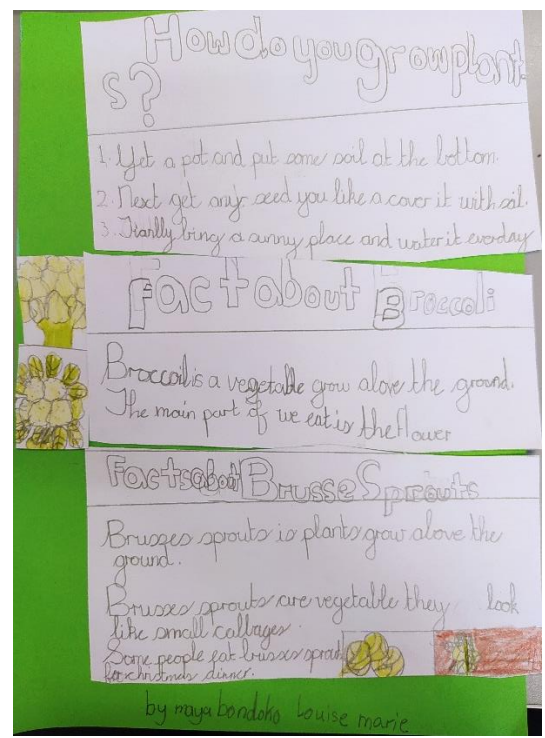 How do you grow plant
s?
1. Get a pot and put some soil at the bottom.
2. Next get any seed you like a cover it with soil.
3. Finally bring a sunny place and water it everday
Fact about Broccoli
Broccoli is a vegetable grow above the ground.
The main part of we eat is the flower
Facts about Brusse Sprouts
Brusses sprouts is plants grow above the
ground.
Brusses sprouts are vegetable they look
like small cabbages.
Some people eat brusses sprouts
for christmas dinner.
by maya bondoko Louise marie